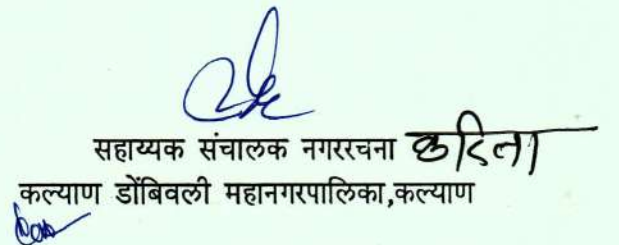 सहाय्यक संचालक नगररचना करिता
कल्याण डोंबिवली महानगरपालिका,कल्याण